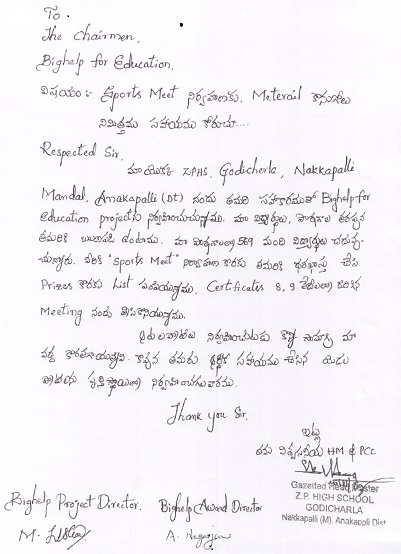 To.
The Chairmen,
Bighelp for Education.
విషయం:- Sports Meet నిర్వహణకు, Meterail కొనుగోలు
నిమిత్తము సహాయము కోరుచూ....
Respected Sir.
మా యొక్క ZPHS, Godicherla, Nakkapalli
Mandal, Anakapalli (Dt) నందు తమరి సహకారముతో Bighelp for
education projectను నిర్వహించుచున్నాము. మా విద్యార్థులు, పాఠశాల తరఫున
తమరికి ఉంటాము. మా పాఠశాలలో 569 మంది విద్యార్థులు చదువు-
చున్నారు. "Sports Meet" తమరికి దరఖాస్తు చేసి
Prizes కొరకు List పంపియున్నాము. Certificates 8, 9 జరిగిన
Meeting నందు
నిర్వహించుటకు కొన్ని మా
వద్ద కావున తమరు ఆర్థిక సహాయము చేసిన
నిర్వహించగలవారము.
Thank you Sir.
ఇట్లు
తమ HM & PCC
Gazetted Head Master
Z.P. HIGH SCHOOL
GODICHARLA
Nakkapalli (M), Anakappli Dist
Bighelp Project Director. Bighelp Award Director
M. A. Nagarjuna